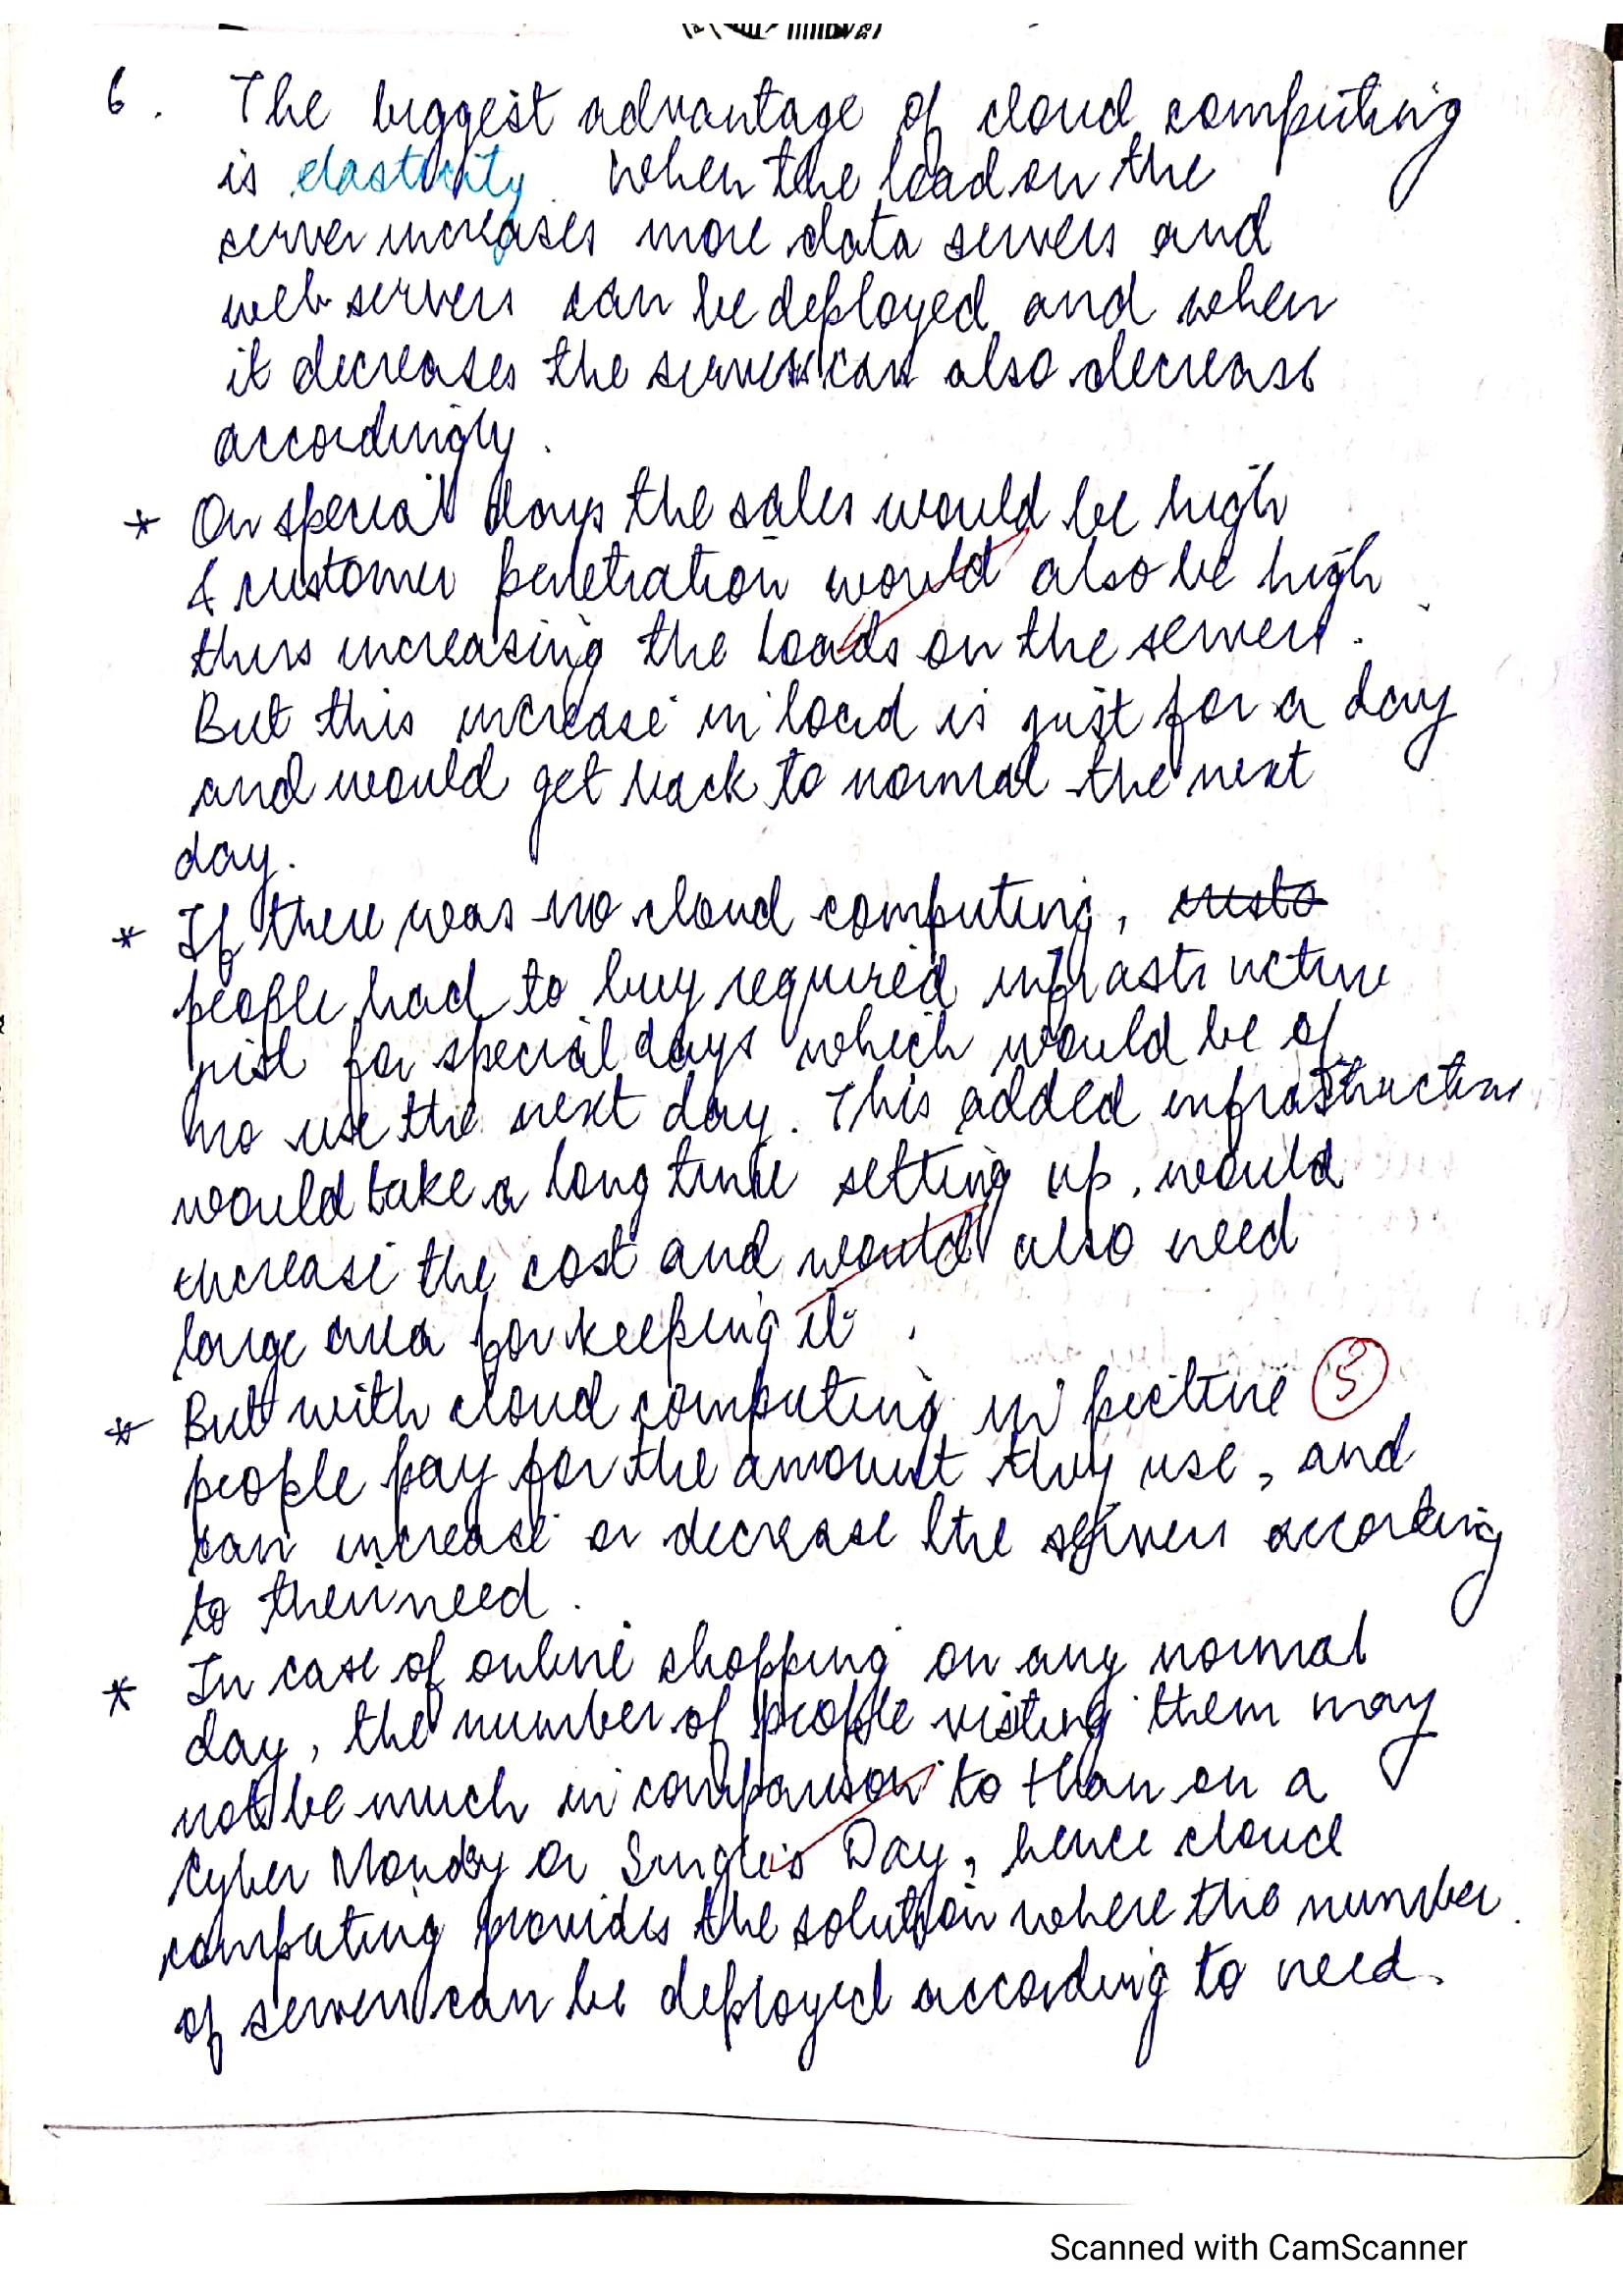 6. The biggest advantage of cloud computing
is elasticity. When the load on the
server increases more data servers and
web servers can be deployed and when
it decreases the servers can also decrease
accordingly.
* On special days the sales would be high
& customer penetration would also be high
thus increasing the loads on the servers.
But this increase in load is just for a day
and would get back to normal the next
day.
* If there was no cloud computing, custo
people had to buy required infrastructure
just for special days which would be of
no use the next day. This added infrastructure
would take a long time setting up, would
increase the cost and would also need
large area for keeping it.
* But with cloud computing in picture 5
people pay for the amount they use, and
can increase or decrease the servers according
to their need.
* In case of online shopping on any normal
day, the number of people visting them may
not be much in comparison to than on a
Cyber Monday or Single's Day, hence cloud
computing provides the solution where the number
of servers can be deployed according to need.
Scanned with CamScanner